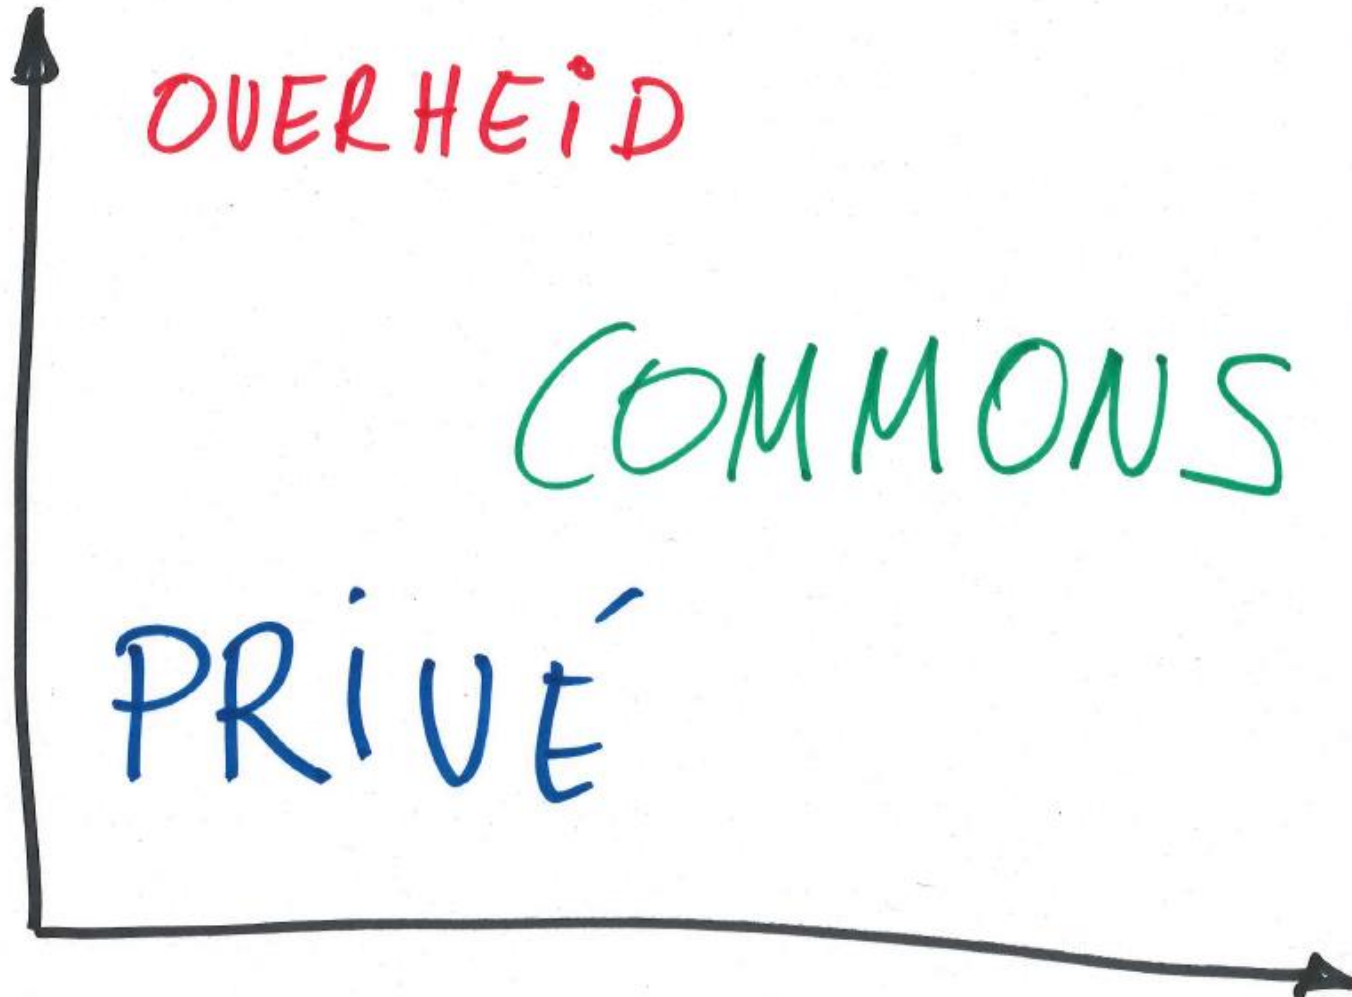 OVERHEiD
COMMONS
PRiVÉ